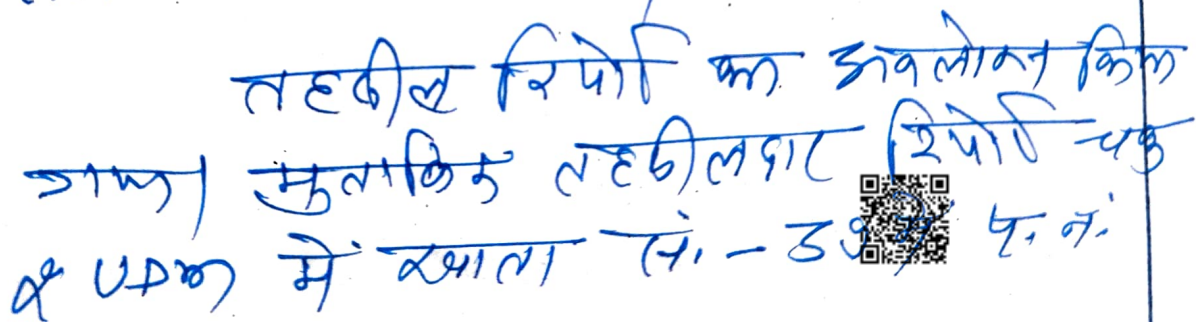 तहसील रिपोर्ट का अवलोकन किया
गया। मुताबिक तहसीलदार रिपोर्ट चक
2 UDM में खाता सं. - में प. नं.